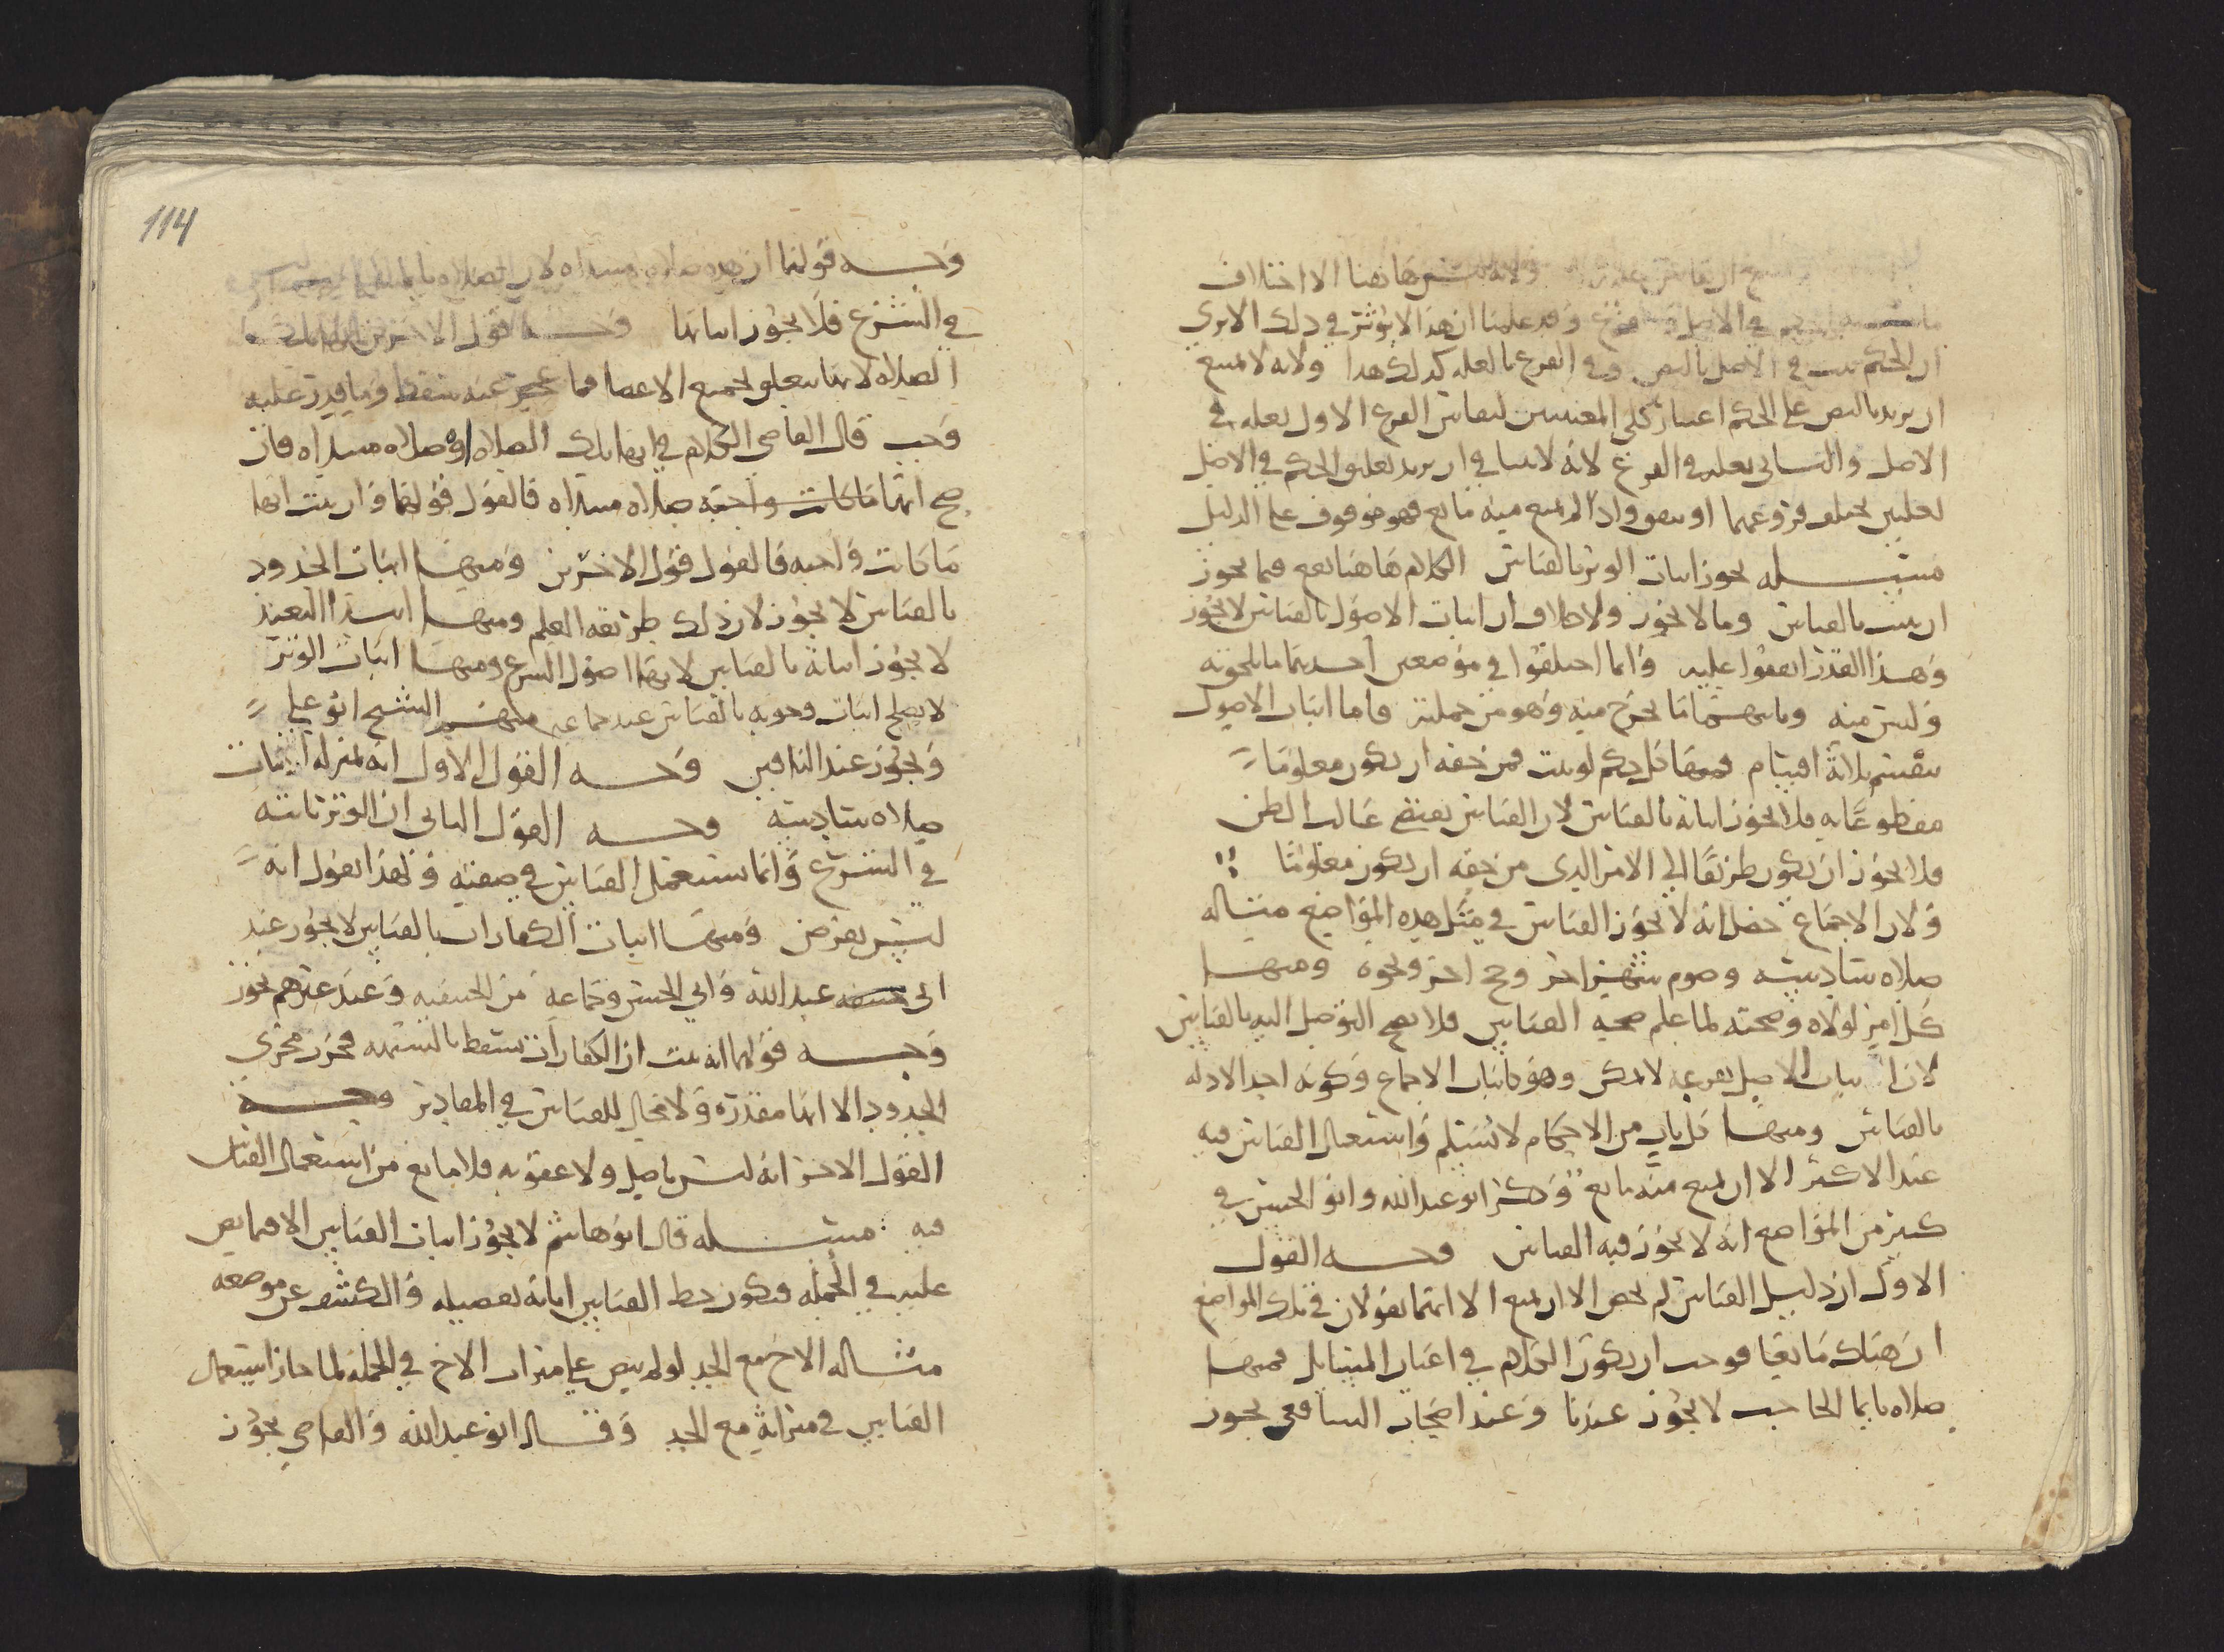 ولانه ليس هاهنا الا اختلاف
في الاصل وقد علمنا ان هذا لا يؤثر في ذلك الا ترى
ان الحكم يثبت في الاصل بالنص وفي الفرع بالعله كذلك هذا ولانه لا يمتنع
ان يريد بالنص على الحكم اعتبار كلى المعنيين ليقاس الفرع الاول بعله في
الاصل والثاني بعله في الفرع لانه لا يتنافى ان يريد تعليق الحكم في الاصل
لعلتين يختلف فروعهما او يتفق واذا لم يمنع منه مانع فهو موقوف على الدليل
مسله يجوز اثبات الوتر بالقياس الكلام هاهنا يقع فيما يجوز
ان يثبت بالقياس وما لا يجوز ولا خلاف ان اثبات الاصول بالقياس لا يجوز
وهذا القدر اتفقوا عليه وانما اختلفوا في موضعين احدهما ما يلحق به
وليس منه وثانيهما ما يخرج منه وهو من جملته فاما اثبات الاصول
ينقسم ثلاثة اقسام فمنها كل حكم لو ثبت فمن حقه ان يكون معلوما
مقطوعا به فلا يجوز اثباته بالقياس لان القياس يقتضي غالب الظن
فلا يجوز ان يكون طريقا الى الامر الذي من حقه ان يكون معلوما
ولان الاجماع حصل انه لا يجوز القياس في مثل هذه المواضع مثاله
صلاه سادسه وصوم شهر اخر وحج اخر ونحوه ومنها
كل امر لولاه وصحته لما علم صحه القياس فلا يصح التوصل اليه بالقياس
لان اثبات الاصل بفرعه لا يمكن وهو كاثبات الاجماع وكونه احد الادله
بالقياس ومنها كل باب من الاحكام لا تسلم واستعمال القياس فيه
عند الاكثر الا ان يمنع منه مانع وذكر ابو عبد الله وابو الحسن في
كثير من المواضع انه لا يجوز فيه القياس وجه القول
الاول ان دليل القياس لم يخص الا ان يمنع الا انهما يقولان في تلك المواضع
ان هناك مانعا فوجب ان يكون الكلام في اعيان المسايل فمنها
صلاه بايما الحاجب لا يجوز عندنا وعند اصحاب الشافعي يجوز
114
وجه قولنا ان هذه صلاه مبتداه لان الصلاه بايما الحاجب
في الشرع فلا يجوز اثباتها وجه القول الاخر
الصلاه لانها تتعلق بجميع الاعضا فما عجز عنه سقط وما قدر عليه
وجب قال القاضي الكلام في انها تلك الصلاه او صلاه مبتداه فان
صح انها ما كانت واجبه صلاه مبتداه فالقول قولنا وان ثبت انها
ما كانت واجبه فالقول قول الاخرين ومنها اثبات الحدود
بالقياس لا يجوز لان ذلك طريقه العلم ومنها ابتدا التعبد
لا يجوز اثباته بالقياس لانها اصول الشرع ومنها اثبات الوتر
لا يصلح اثبات وجوبه بالقياس عند جماعه منهم الشيخ ابو علي
ويجوز عند الباقين وجه القول الاول انه بمنزله اثبات
صلاه سادسه وجه القول الثاني ان الوتر ثابته
في الشرع وانما نستعمل القياس في صفته ولهذا نقول انه
ليس بفرض ومنها اثبات الكفارات بالقياس لا يجوز عند
ابي عبد الله وابي الحسن وجماعه من الحنفيه وعند غيرهم يجوز
وجه قولهما انه ثبت ان الكفارات تسقط بالشبهه فجرت مجرى
الحدود الا انها مقدره ولا مجال للقياس في المقادير وجه
القول الاخر انه ليس باصل ولا عقوبه فلا مانع من استعمال القياس
فيه مسله قال ابو هاشم لا يجوز اثبات القياس الا فيما نص
عليه في الجمله فيكون حظ القياس ابانه تفصيله والكشف عن موضعه
مثاله الاخ مع الجد لو لم ينص على ميراث الاخ في الجمله لما جاز استعمال
القياس في ميراثه مع الجد وقال ابو عبد الله والقاضي يجوز